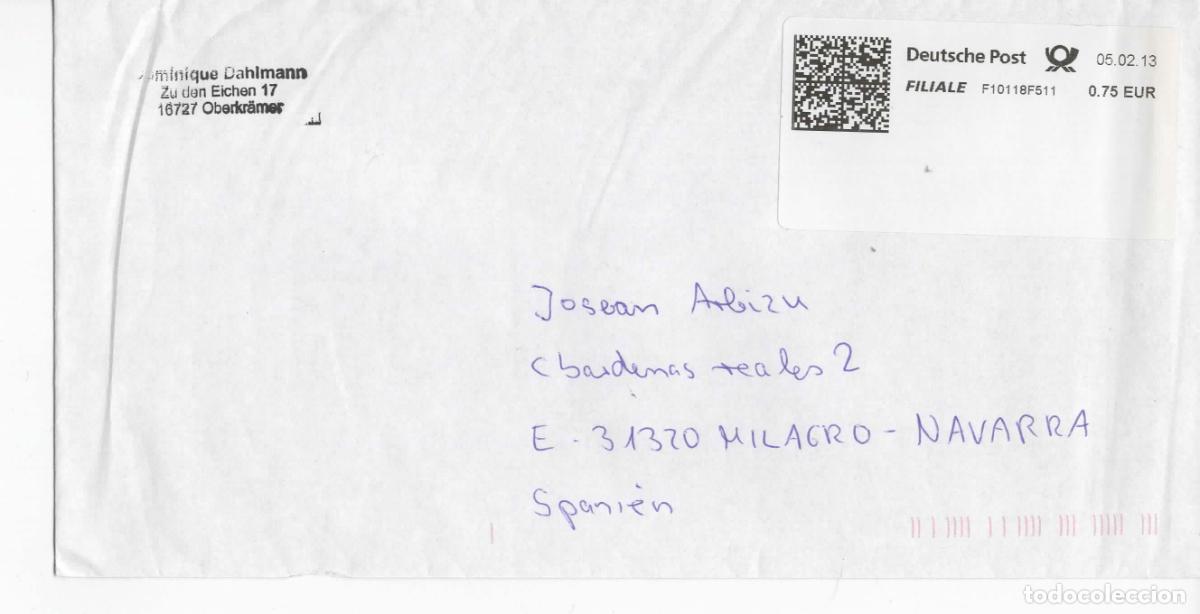 Dominique Dahlmann
Zu den Eichen 17
16727 Oberkrämer
Deutsche Post 05.02.13
FILIALE F10118F511 0.75 EUR
Josean Arbizu
C bardenas reales 2
E - 31320 MILAGRO - NAVARRA
Spanien
todocoleccion